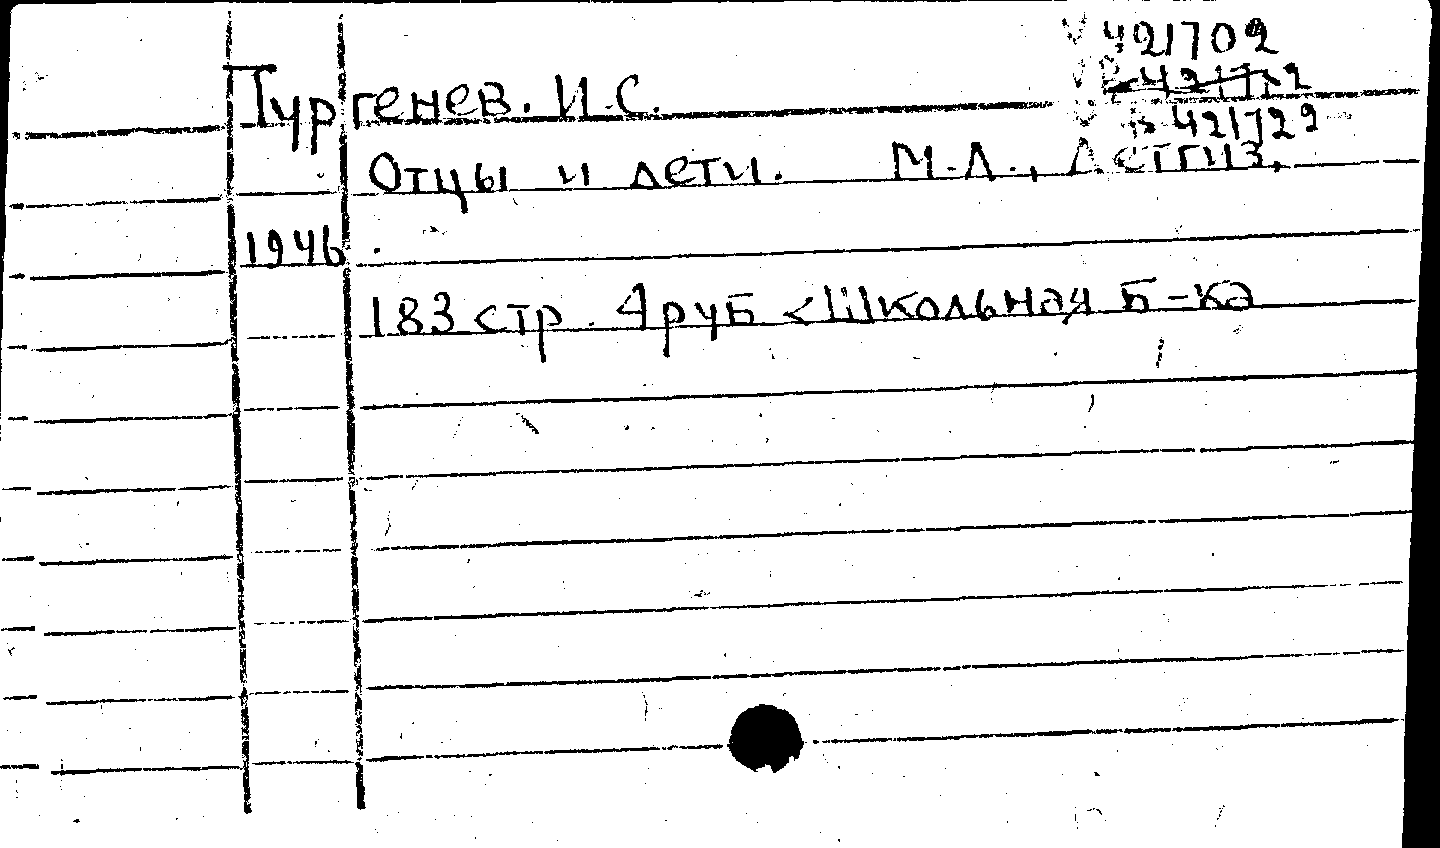 421702
Тургенев. И.С.
В 421729
Отцы и дети. М.-Л., Детгиз,
1946.
183 стр. 4 руб <Школьная б-ка